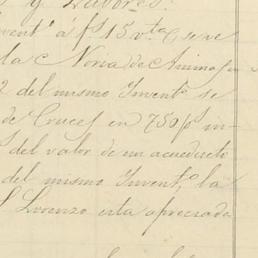 y Labores.
á f.s 15 v.ta, se ve
la Noria de Animas
2 del mismo Invent.o se
de Cruces en 750 p.s in-
del valor de un acueducto
del mismo Invent.o, la
Lorenzo esta apreciada